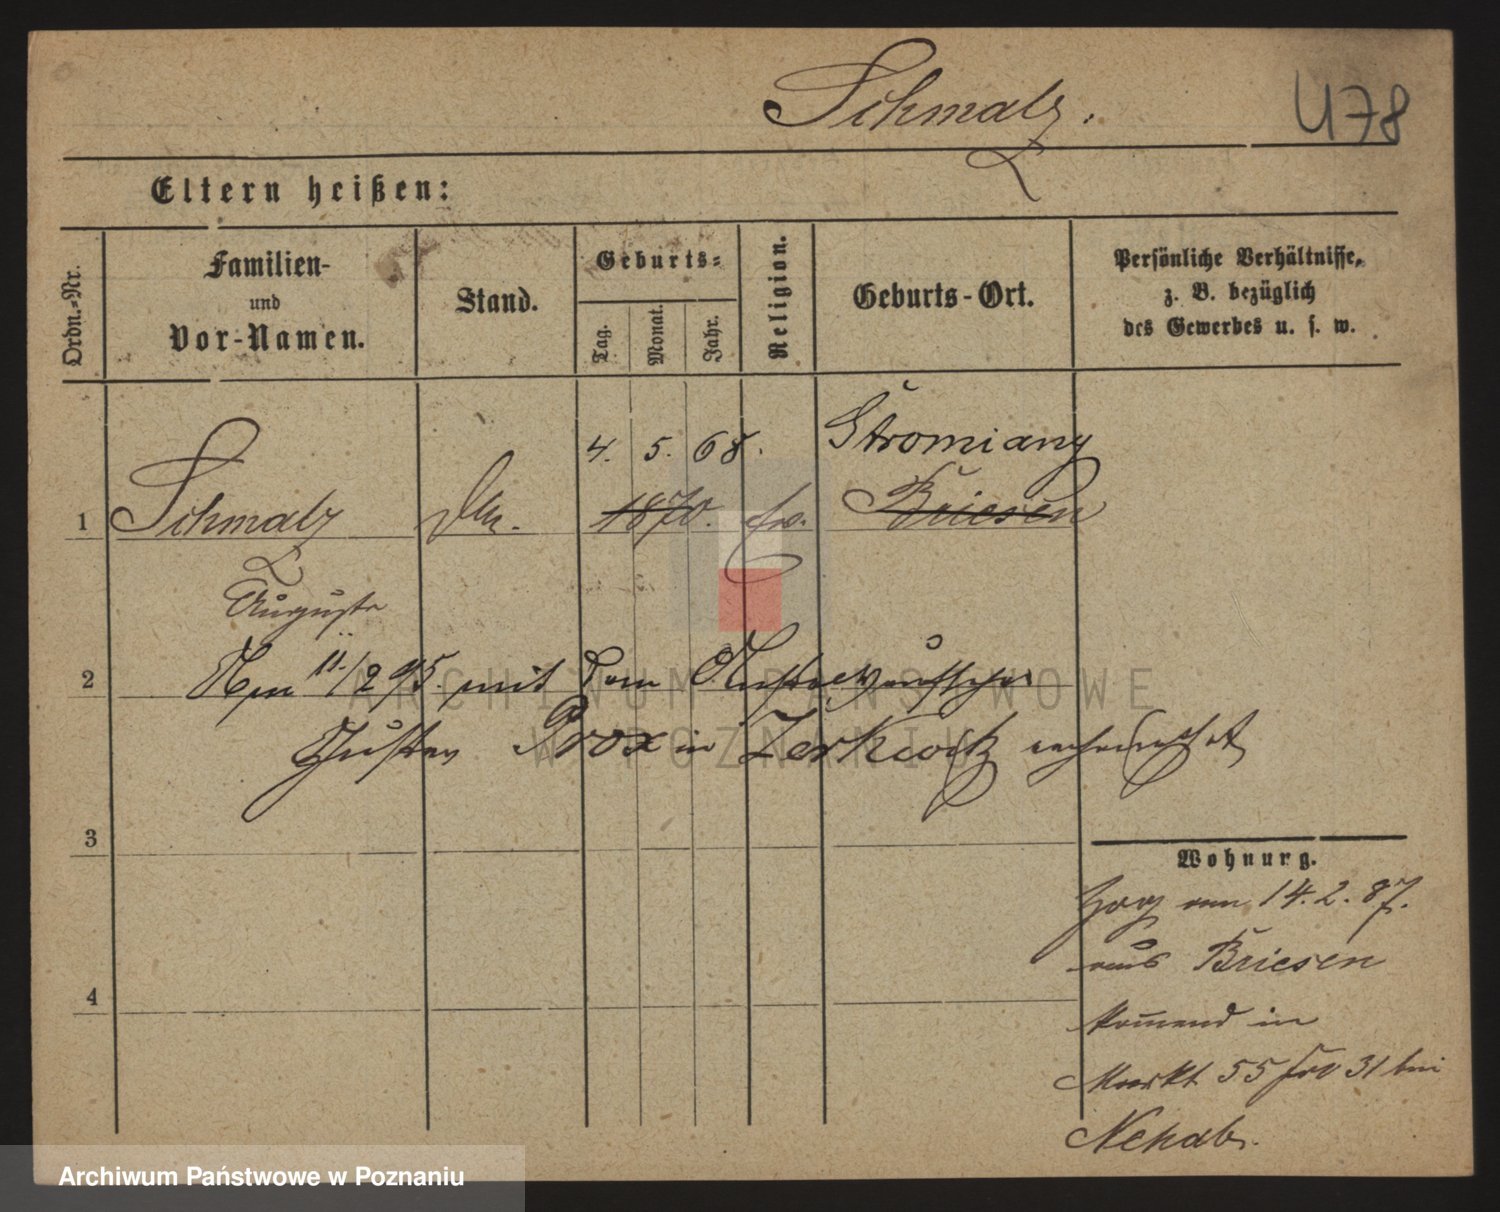 Schmalz.
478
Eltern heißen:
Ordn.-Nr.
Familien-
und
Vor-Namen.
Stand.
Geburts-
Tag.
Monat.
Jahr.
Religion.
Geburts-Ort.
Persönliche Verhältnisse,
z. B. bezüglich
des Gewerbes u. s. w.
4. 5. 68. Stromiany
1 Schmalz 1870. ev. Briesen
Auguste
2 Am 11./2 95. mit dem
Gustav Prox in Zerkwitz verheirathet
3
Wohnung.
Zog am 14. 2. 87.
aus Briesen
kommend in
4
Markt 55 bei
Nehab.
ARCHIWUM PAŃSTWOWE
W POZNANIU
Archiwum Państwowe w Poznaniu